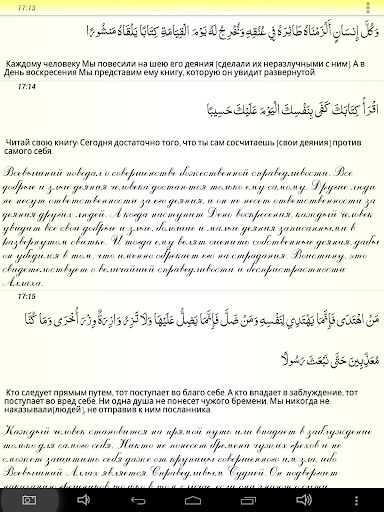 17:13
وَكُلَّ إِنسَانٍ أَلْزَمْنَاهُ طَائِرَهُ فِي عُنُقِهِ وَنُخْرِجُ لَهُ يَوْمَ الْقِيَامَةِ كِتَابًا يَلْقَاهُ مَنشُورًا
Каждому человеку Мы повесили на шею его деяния (сделали их неразлучными с ним). А в
День воскресения Мы представим ему книгу, которую он увидит развернутой.
17:14
اقْرَأْ كِتَابَكَ كَفَى بِنَفْسِكَ الْيَوْمَ عَلَيْكَ حَسِيبًا
Читай свою книгу! Сегодня достаточно того, что ты сам сосчитаешь (свои деяния) против
самого себя.
Всевышний поведал о совершенстве божественной справедливости. Все
добрые и злые деяния человека достаются только ему самому. Другие люди
не несут ответственности за его деяния, и он не несет ответственности за
деяния других людей. А когда наступит День воскресения, каждый человек
увидит все свои добрые и злые, большие и малые деяния записанными в
развернутом свитке. И тогда ему велят оценить собственные деяния, дабы
он убедился в том, что именно обрекает его на страдания. Воистину, это
свидетельствует о величайшей справедливости и беспристрастности
Аллаха.
17:15
مَنِ اهْتَدَى فَإِنَّمَا يَهْتَدِي لِنَفْسِهِ وَمَن ضَلَّ فَإِنَّمَا يَضِلُّ عَلَيْهَا وَلَا تَزِرُ وَازِرَةٌ وِزْرَ أُخْرَى وَمَا كُنَّا
مُعَذِّبِينَ حَتَّى نَبْعَثَ رَسُولًا
Кто следует прямым путем, тот поступает во благо себе. А кто впадает в заблуждение, тот
поступает во вред себе. Ни одна душа не понесет чужого бремени. Мы никогда не
наказывали(людей), не отправив к ним посланника.
Каждый человек становится на прямой путь или впадает в заблуждение
только для самого себя. Никто не понесет бремени чужих грехов и не
сможет защитить себя даже от крупицы совершенного им зла, ибо
Всевышний Аллах является Справедливым Судией. Он подвергает